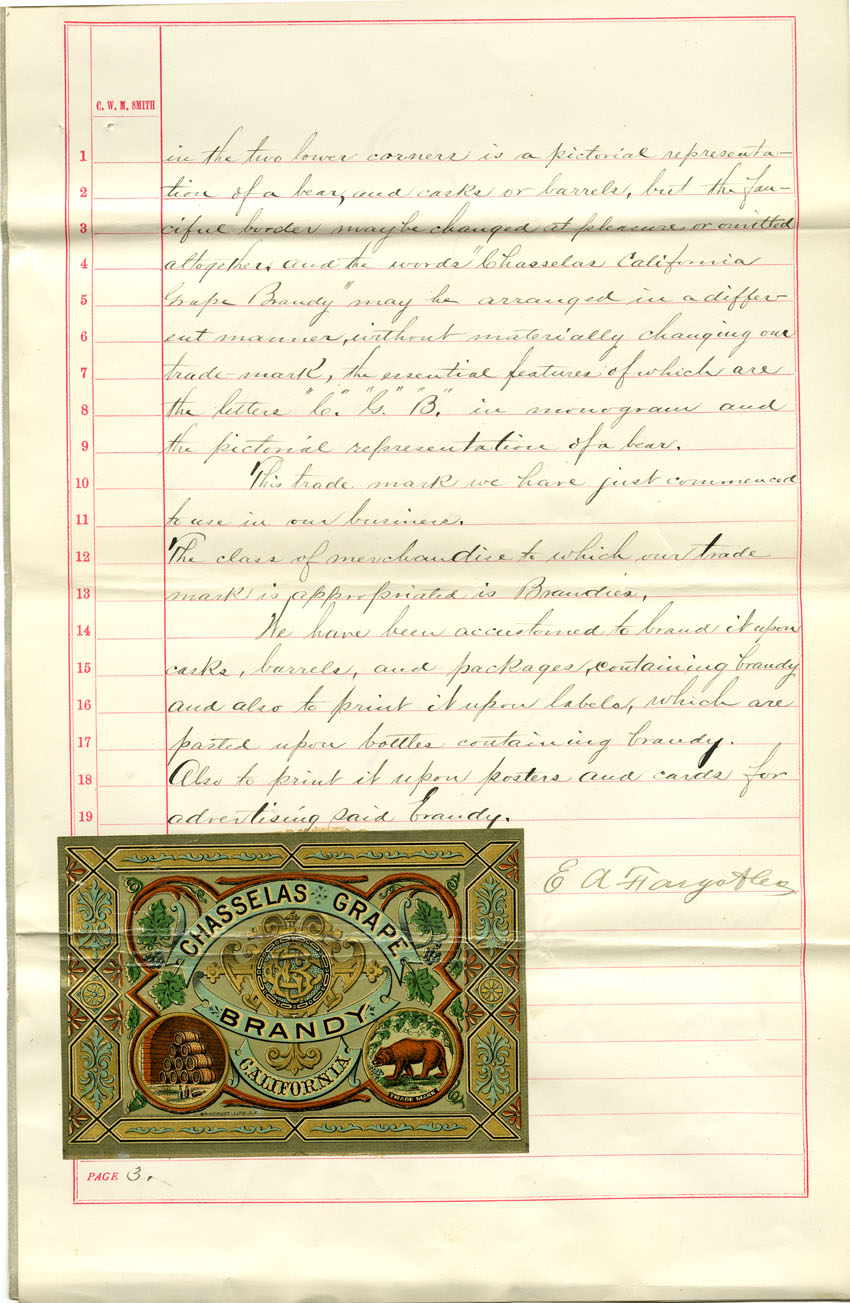 C. W. M. SMITH
1 in the two lower corners is a pictorial representa-
2 tion of a bear, and casks or barrels, but the fan-
3 ciful border may be changed at pleasure or omitted
4 altogether, and the words "Chasselas California
5 Grape Brandy" may be arranged in a differ-
6 ent manner, without materially changing our
7 trade-mark, the essential features of which are
8 the letters "C." "G." "B." in monogram and
9 the pictorial representation of a bear.
10 This trade mark we have just commenced
11 to use in our business.
12 The class of merchandise to which our trade
13 mark is appropriated is Brandies.
14 We have been accustomed to brand it upon
15 casks, barrels, and packages, containing brandy
16 and also to print it upon labels, which are
17 pasted upon bottles containing brandy.
18 Also to print it upon posters and cards for
19 advertising said Brandy.
E A Fargo & Co
CHASSELAS GRAPE
CGB
BRANDY
CALIFORNIA
TRADE MARK
BANCROFT LITH. S.F.
PAGE 3.